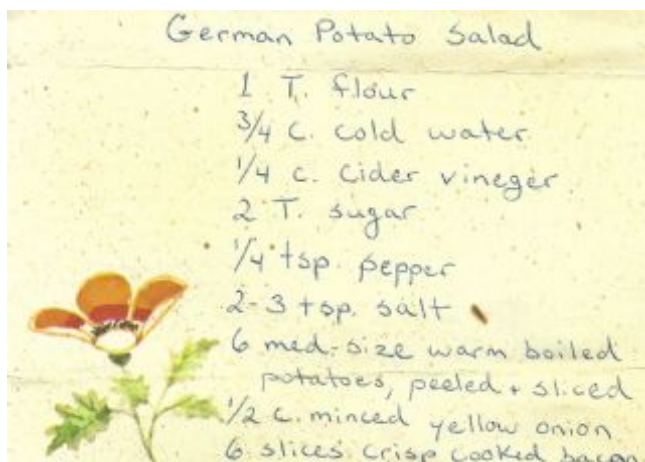 German Potato Salad
1 T. flour
3/4 c. cold water
1/4 c. cider vineger
2 T. sugar
1/4 tsp. pepper
2-3 tsp. salt
6 med-size warm boiled
potatoes, peeled + sliced
1/2 c. minced yellow onion
6 slices crisp cooked bacon